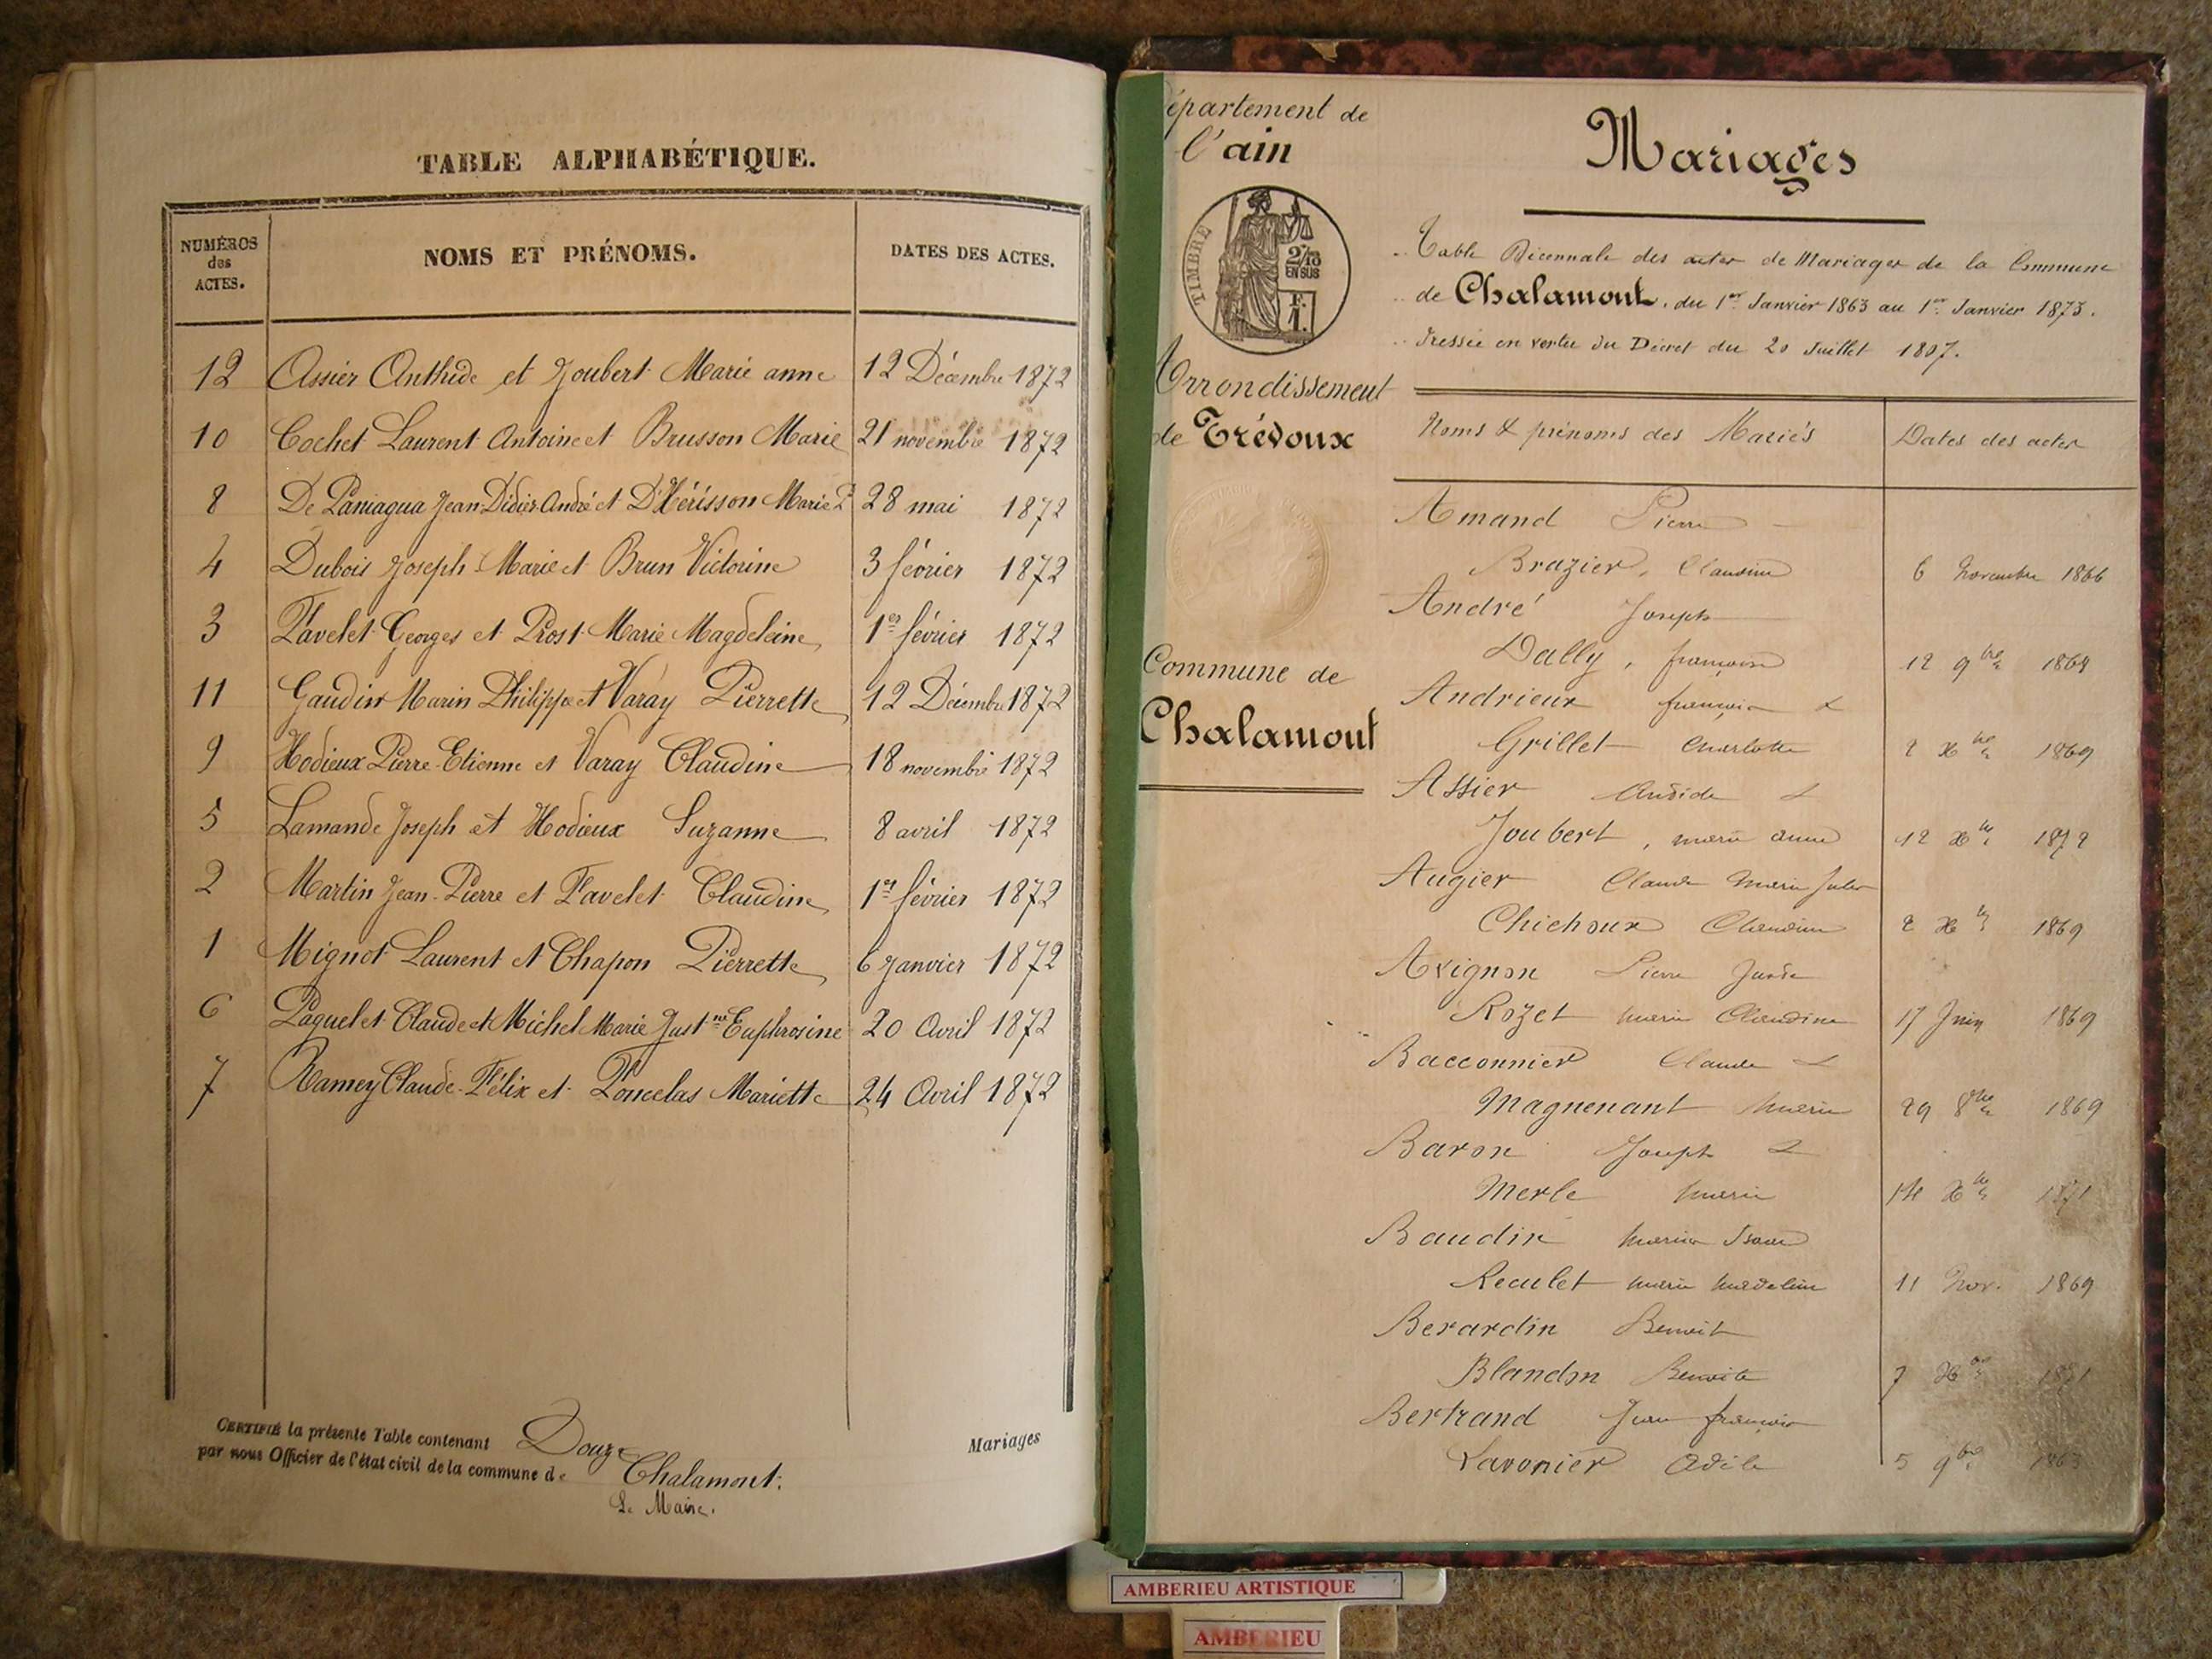 TABLE ALPHABÉTIQUE.
NUMÉROS des ACTES. NOMS ET PRÉNOMS. DATES DES ACTES.
12 Assier Anthide et Joubert Marie anne 12 Décembre 1872
10 Cochet Laurent Antoine et Brusson Marie 21 novembre 1872
8 De Paniagua Jean Didier André et D'Hérisson Marie 28 mai 1872
4 Dubois Joseph Marie et Brun Victorine 3 février 1872
3 Favelet Georges et Prost Marie Magdeleine 1er février 1872
11 Gaudin Marin Philippe et Varay Pierrette 12 Décembre 1872
9 Hodieux Pierre Etienne et Varay Claudine 18 novembre 1872
5 Lamande Joseph et Hodieux Suzanne 8 avril 1872
2 Martin Jean-Pierre et Favelet Claudine 1er février 1872
1 Mignot Laurent et Chapon Pierrette 6 Janvier 1872
6 Paquelet Claude et Michel Marie Justne Euphrosine 20 Avril 1872
7 Ramey Claude-Félix et Poncelas Mariette 24 Avril 1872
CERTIFIÉ la présente Table contenant Douze Mariages
par nous Officier de l'état civil de la commune de Chalamont.
Le Maire.
épartement de
l'ain
TIMBRE
2/10
EN SUS
F.
1.
Arrondissement
de Trévoux
Commune de
Chalamont
Mariages
Table Décennale des actes de Mariages de la Commune
de Chalamont, du 1er Janvier 1863 au 1er Janvier 1873.
dressée en vertu du Décret du 20 Juillet 1807.
Noms & prénoms des Mariés Dates des actes
Amand Pierre
Brazier, Claudine 6 Novembre 1866
André Joseph
Dally, françoise 12 9bre 1868
Andrieux françois &
Grillet Charlotte 2 Xbre 1869
Assier Antide &
Joubert, marie anne 12 Xbre 1872
Augier Claude Marie Jules
Chichoux Claudine 2 Xbre 1869
Avignon Pierre
Rozet marie Claudine 17 Juin 1869
Bacconnier Claude &
Magnenant Marie 29 8bre 1869
Baron Joseph &
Merle Marie 14 Xbre 1871
Baudin Marin
Reculet marie madeleine 11 Nov. 1869
Berardin Benoit
Blandon Benoite 7 Xbre 1871
Bertrand Jean françois
Lavonier Adèle 5 9bre 1863
AMBERIEU ARTISTIQUE
AMBERIEU